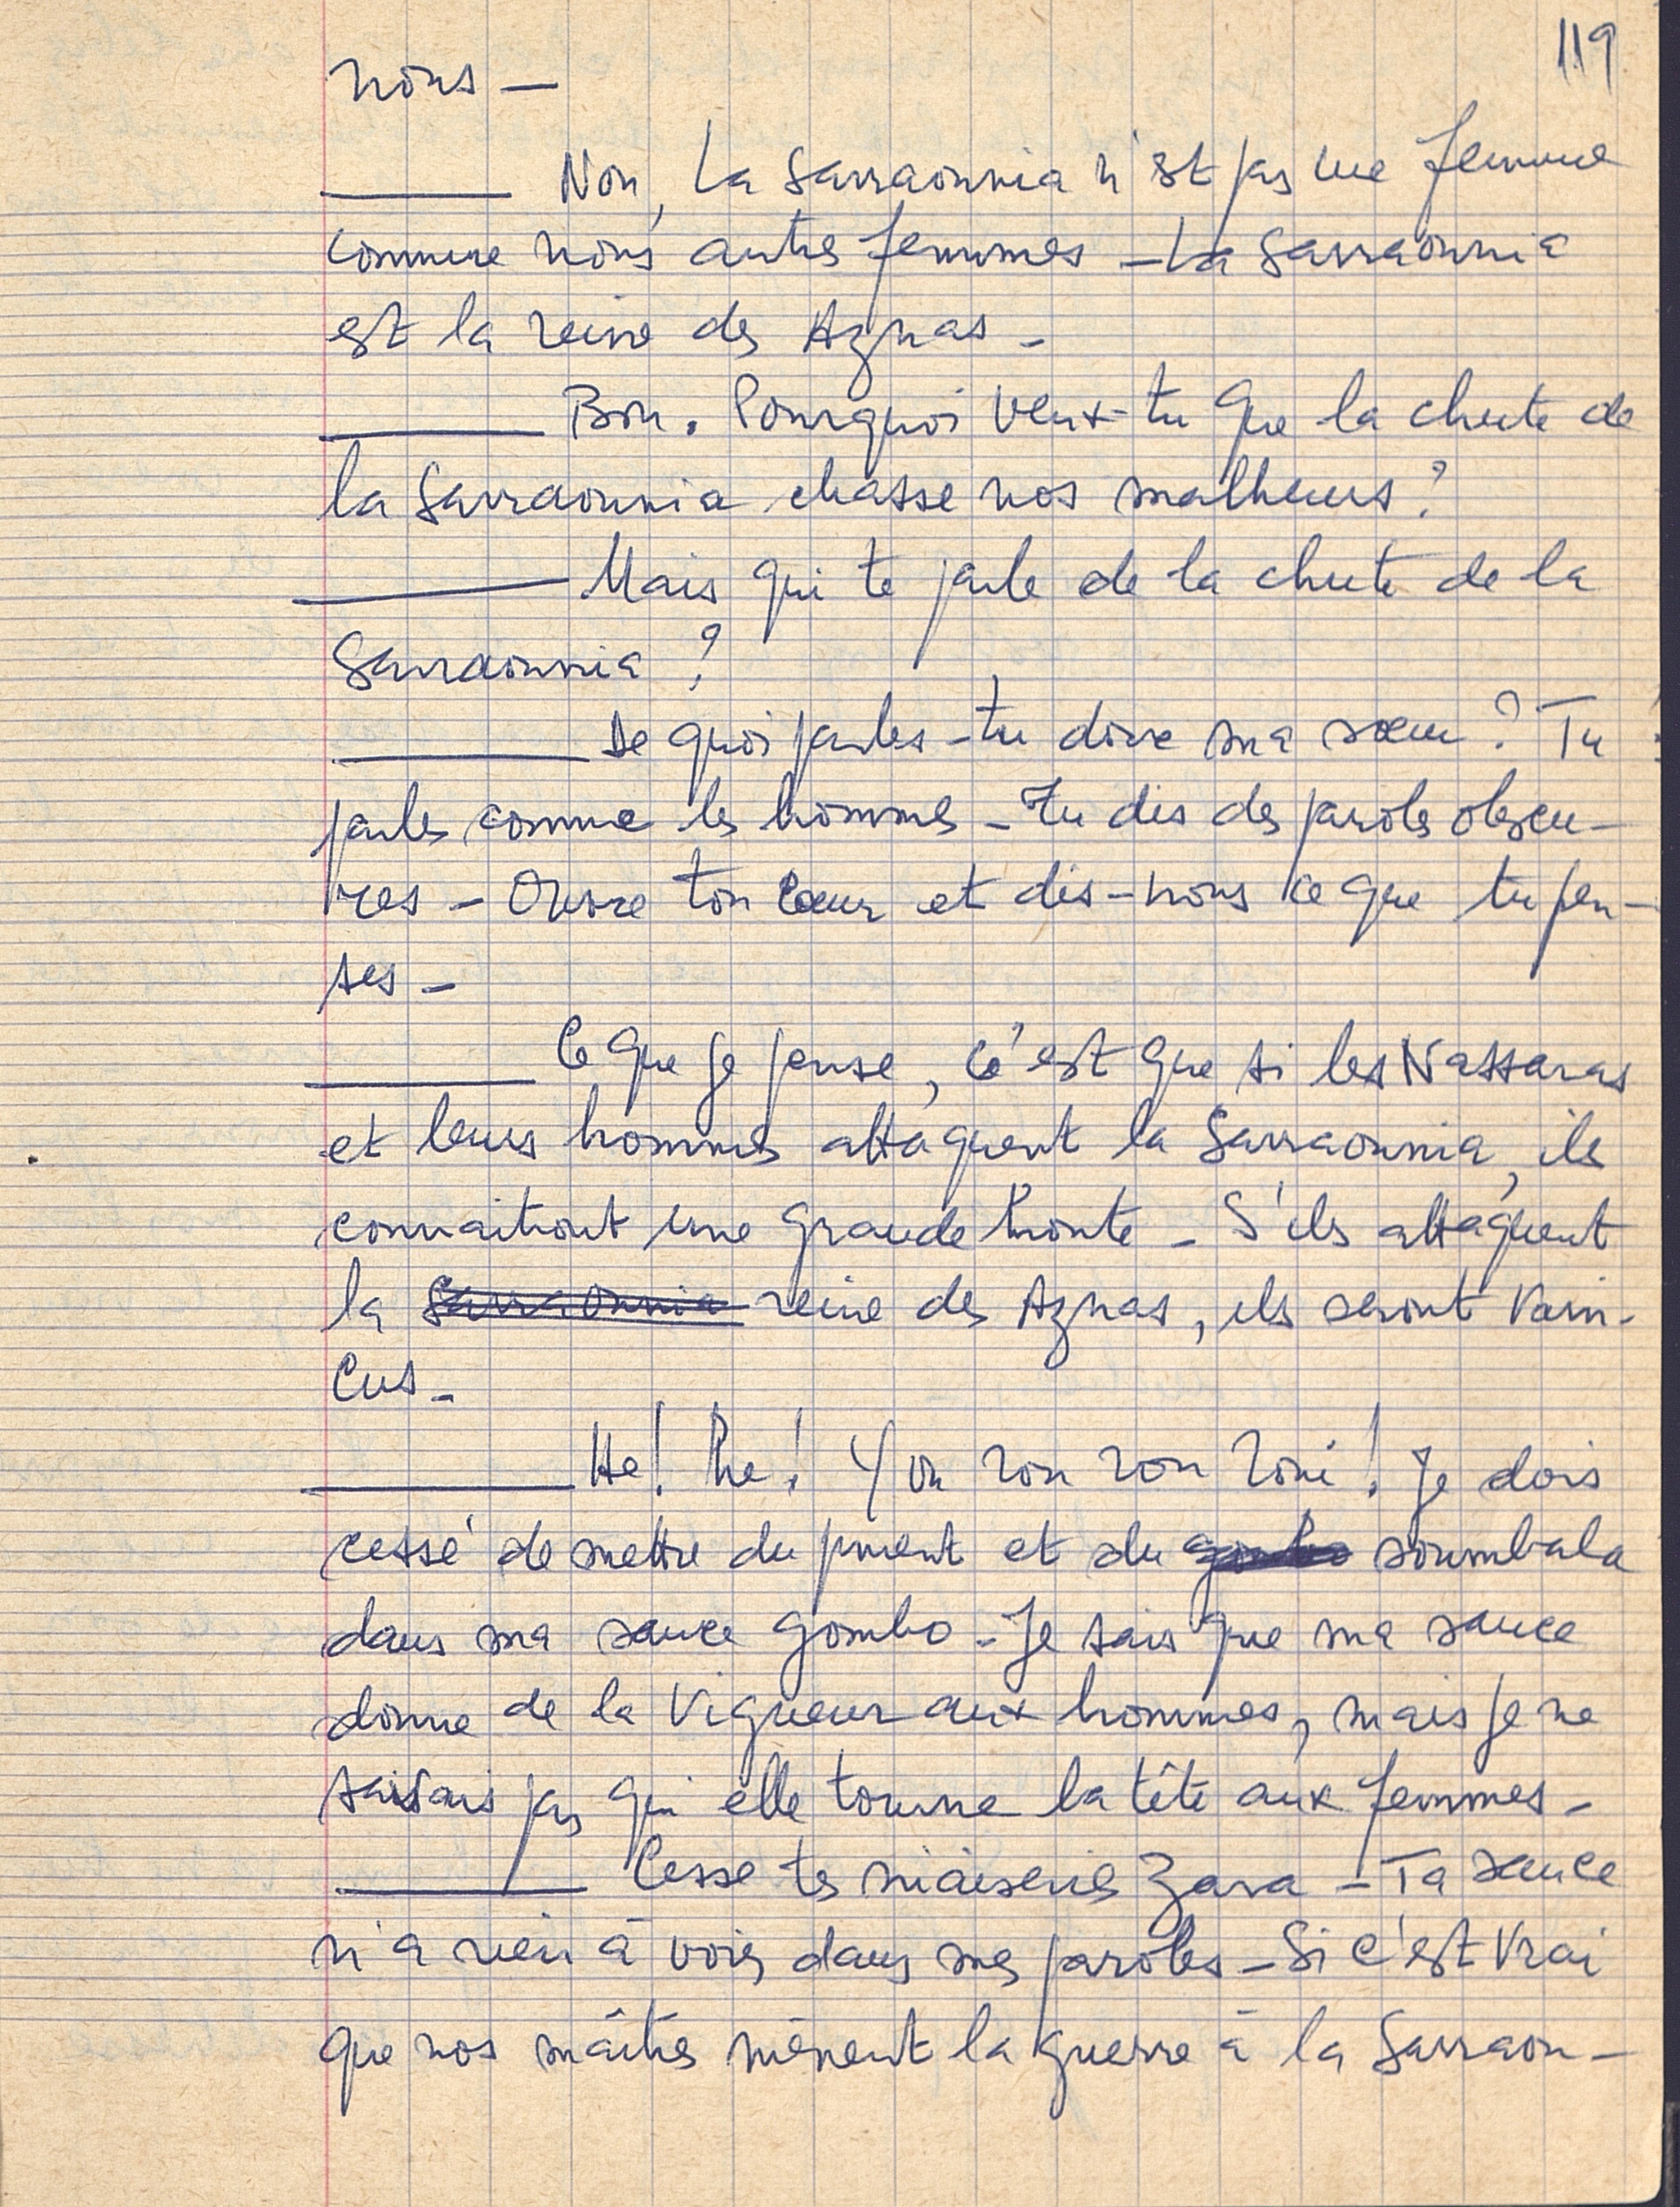 119
nous –
——— Non, La Sarraounia n'est pas une femme
comme nous autres femmes – La Sarraounia
est la reine des Aznas –
——— Bon. Pourquoi veux-tu que la chute de
la Sarraounia chasse nos malheurs ?
——— Mais qui te parle de la chute de la
Sarraounia ?
——— De quoi parles-tu donc ma sœur ? Tu
parles comme les hommes – Tu dis des paroles obscu-
res – Ouvre ton cœur et dis-nous ce que tu pen-
ses –
——— Ce que je pense, c'est que si les Nassaras
et leurs hommes attaquent la Sarraounia, ils
connaitront une grande honte – S'ils attaquent
la Sarraounia reine des Aznas, ils seront vain-
cus –
——— He ! he ! You rou rou roui ! Je dois
cessé de mettre du piment et du gombo soumbala
dans ma sauce gombo – Je sais que ma sauce
donne de la vigueur aux hommes, mais je ne
saisais pas qui elle tourne la tête aux femmes –
——— Cesse tes niaiseries Zara – Ta sauce
n'a rien à voir dans mes paroles – Si c'est vrai
que nos maîtres mènent la guerre à la Sarraou-